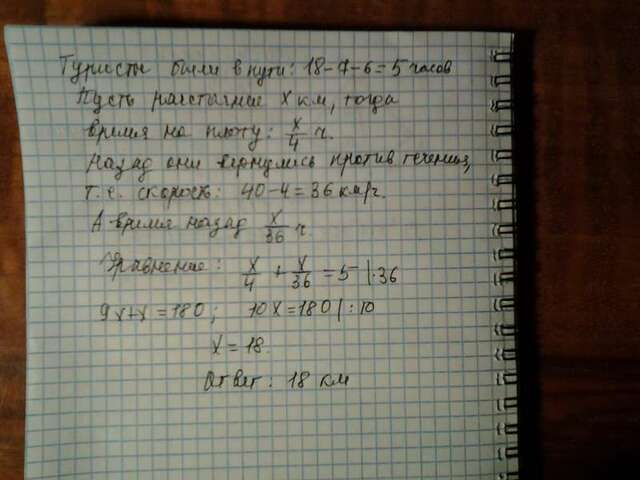 Туристы были в пути: 18-7-6=5 часов
Пусть расстояние x км, тогда
время на плоту: x/4 ч.
Назад они вернулись против течения,
т.е. скорость: 40-4=36 км/ч.
А время назад x/36 ч.
Уравнение: x/4 + x/36 = 5 |·36
9x+x=180; 10x=180 |:10
x=18.
Ответ: 18 км